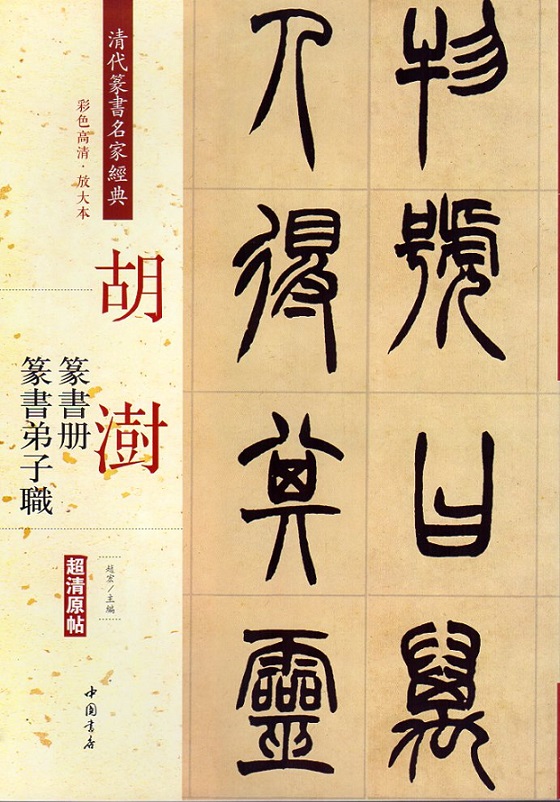 物號曰萬
人得其靈
清代篆書名家經典
彩色高清·放大本
胡澍
篆書册
篆書弟子職
趙宏/主編
超清原帖
中国書店